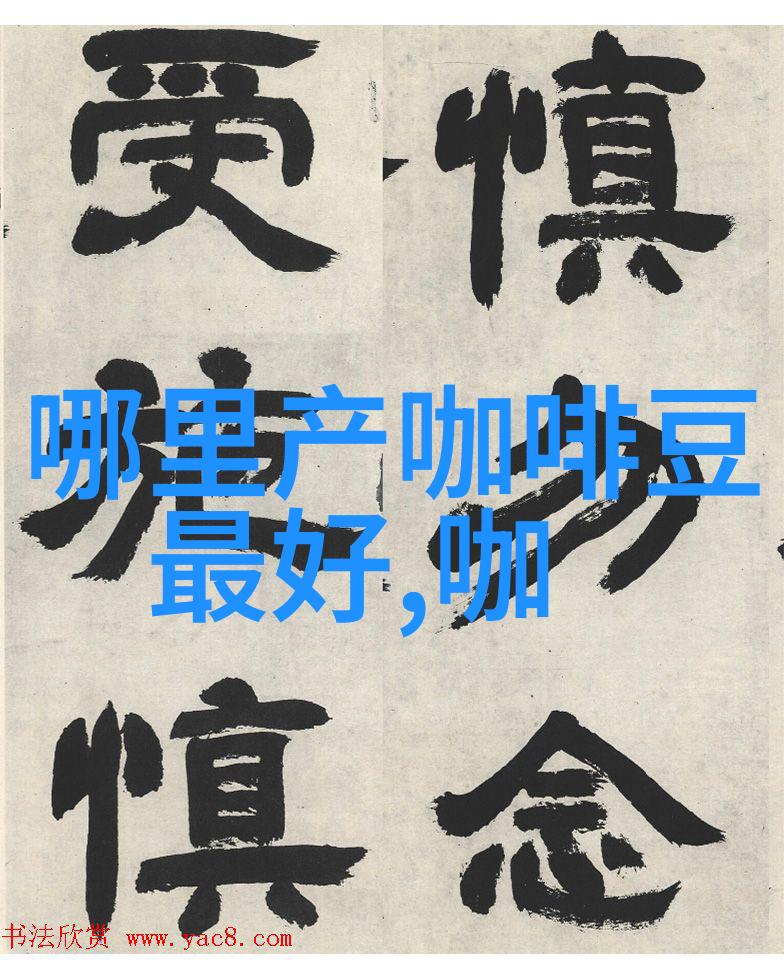 慎勿念
受施慎
哪里产咖啡豆
最好,咖
书法欣赏 www.yac8.com